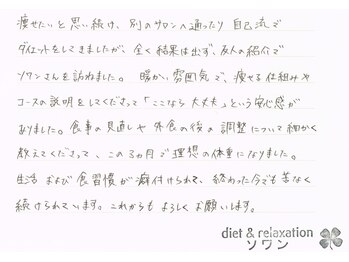 痩せたいと思い続け、別のサロンへ通ったり自己流で
ダイエットをしてきましたが、全く結果は出ず、友人の紹介で
ソワンさんを訪ねました。暖かい雰囲気で、痩せる仕組みや
コースの説明をしてくださって「ここなら大丈夫」という安心感が
ありました。食事の見直しや外食の後の調整について細かく
教えてくださって、この3ヵ月で理想の体重になりました。
生活および食習慣が癖付けられて、終わった今でも苦なく
続けられています。これからもよろしくお願いします。
diet & relaxation
ソワン